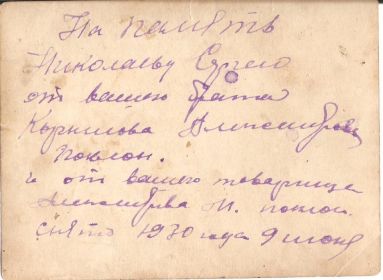 На память
Николаеву Сергею
от вашего брата
Корнилова Александра
поклон.
и от вашего товарища
М. поклон.
снято 1930 года 9 июня